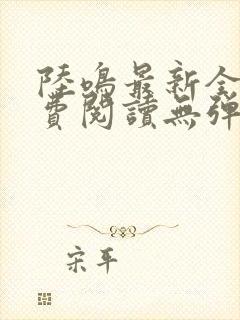 陸鳴最新全
費閱讀無彈
宋平